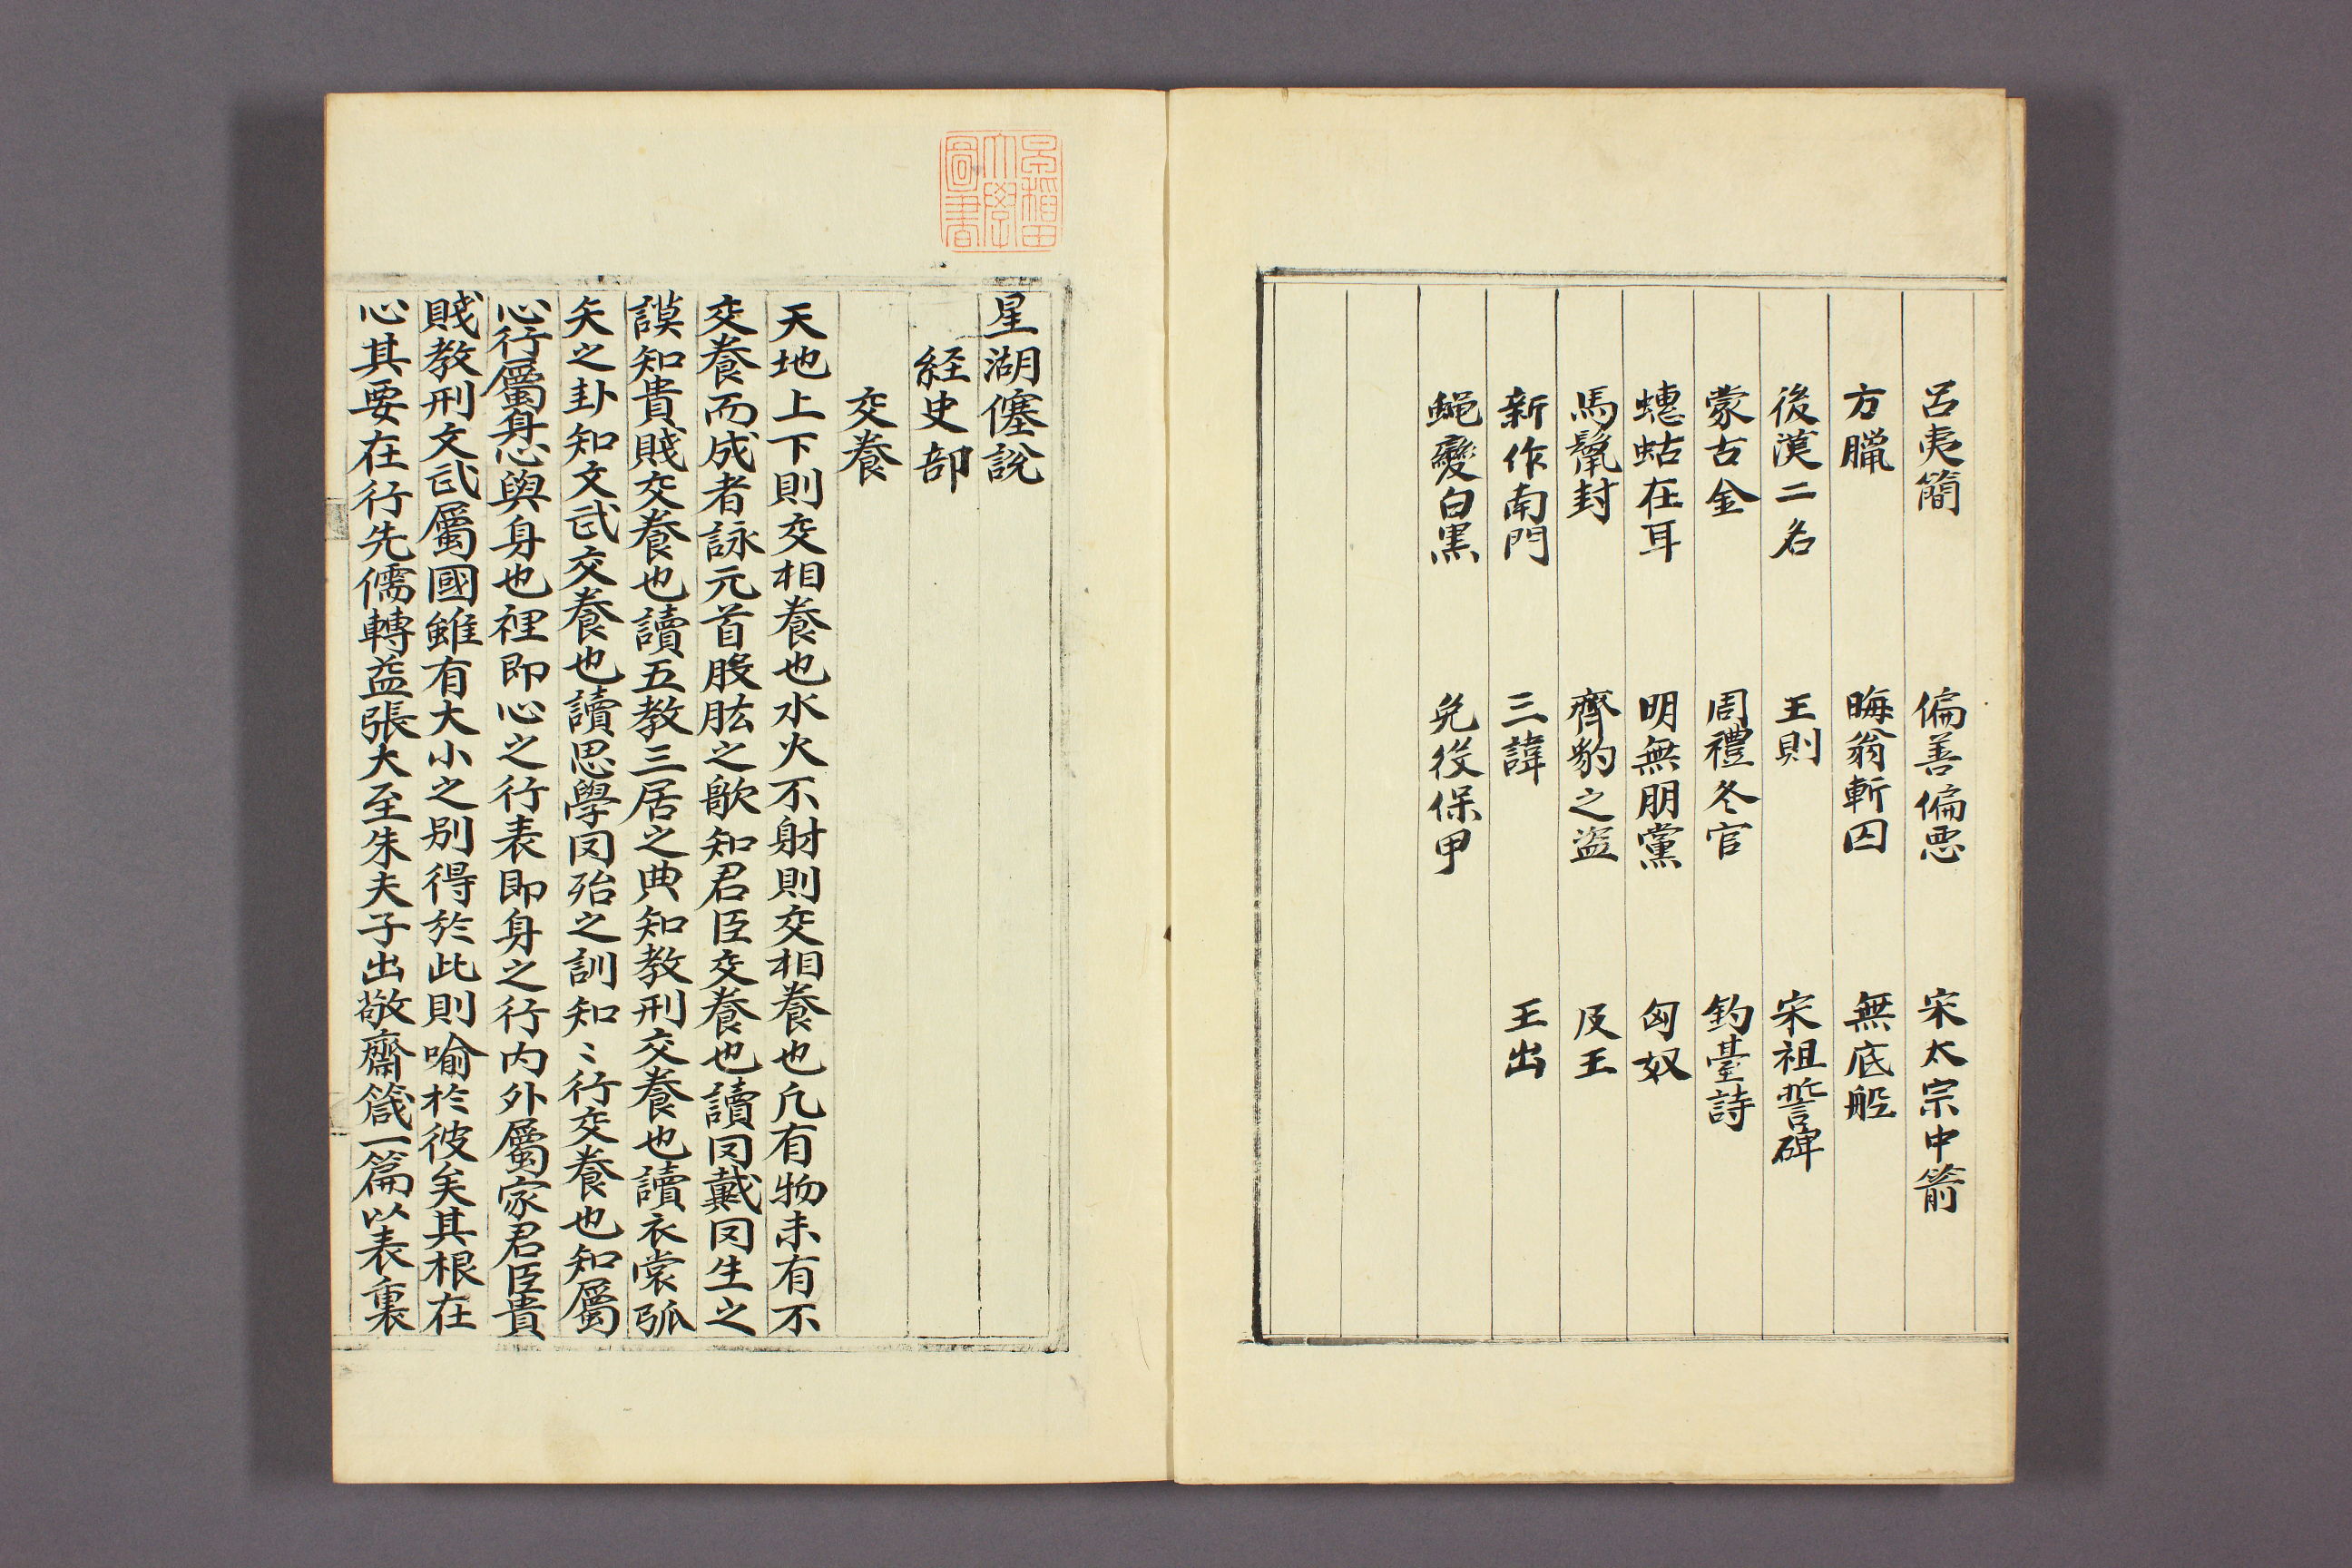 呂夷簡 偏善偏悪 宋太宗中箭
方臘 晦翁斬囚 無底船
後漢二名 王則 宋祖誓碑
蒙古金 周禮冬官 釣臺詩
蟪蛄在耳 明無朋黨 匈奴
馬鬣封 齊豹之盗 反王
新作南門 三諱 王出
蝇變白黒 免役保甲
早稲田大學圖書
星湖僿說
経史部
交養
天地上下則交相養也水火不射則交相養也凡有物未有不
交養而成者詠元首股肱之歌知君臣交養也讀罔戴罔生之
謨知貴賤交養也讀五教三居之典知教刑交養也讀衣裳弧
矢之卦知文武交養也讀思學罔殆之訓知〻行交養也知屬
心行屬身心與身也裡即心之行表即身之行内外屬家君臣貴
賤教刑文武屬國雖有大小之别得於此則喻扵彼矣其根在
心其要在行先儒轉益張大至朱夫子出敬齋箴一篇以表裏